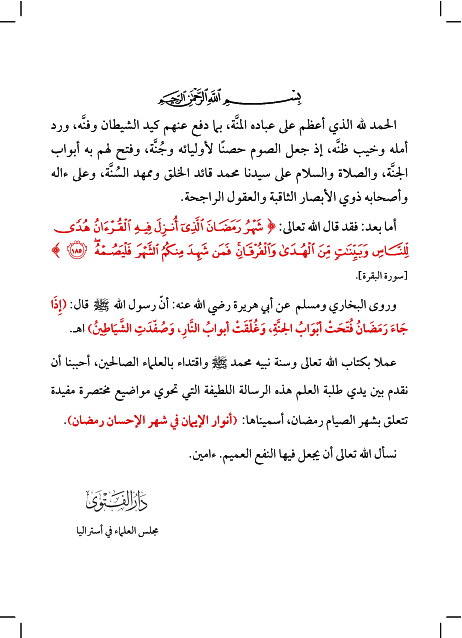 بِسْمِ اللَّهِ الرَّحْمَٰنِ الرَّحِيمِ
الحمد لله الذي أعظم على عباده المنَّة، بما دفع عنهم كيد الشيطان وفنَّه، ورد
أمله وخيب ظنَّه، إذ جعل الصوم حصنًا لأوليائه وجُنَّة، وفتح لهم به أبواب
الجنَّة، والصلاة والسلام على سيدنا محمد قائد الخلق وممهد السُّنة، وعلى ءاله
وأصحابه ذوي الأبصار الثاقبة والعقول الراجحة.
أما بعد: فقد قال الله تعالى: ﴿ شَهْرُ رَمَضَانَ الَّذِيٓ أُنزِلَ فِيهِ الْقُرْءَانُ هُدًى
لِّلنَّاسِ وَبَيِّنَٰتٍ مِّنَ الْهُدَىٰ وَالْفُرْقَانِۚ فَمَن شَهِدَ مِنكُمُ الشَّهْرَ فَلْيَصُمْهُۖ ١٨٥ ﴾
[سورة البقرة].
وروى البخاري ومسلم عن أبي هريرة رضي الله عنه: أنّ رسول الله ﷺ قال: (إِذَا
جَاءَ رَمَضَانُ فُتِحَتْ أَبْوَابُ الجنَّةِ، وَغُلِّقَتْ أبوابُ النَّارِ، وَصُفِّدَتِ الشَّيَاطِينُ) اهـ.
عملا بكتاب الله تعالى وسنة نبيه محمد ﷺ واقتداء بالعلماء الصالحين، أحببنا أن
نقدم بين يدي طلبة العلم هذه الرسالة اللطيفة التي تحوي مواضيع مختصرة مفيدة
تتعلق بشهر الصيام رمضان، أسميناها: (أنوار الإيمان في شهر الإحسان رمضان).
نسأل الله تعالى أن يجعل فيها النفع العميم. ءامين.
دار الفتوى
مجلس العلماء في أستراليا